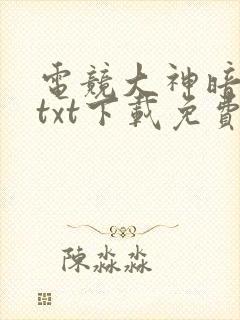 電競大神暗
txt下載免費
陳淼淼